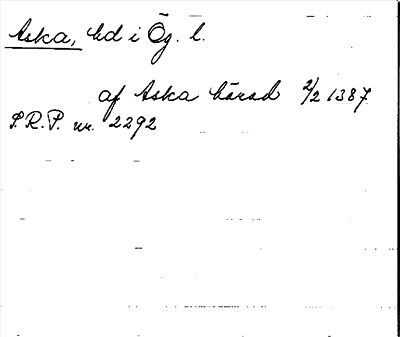 Aska, hd i Ög. l.
af Aska härad 2/2 1387
S.R.P. nr. 2292